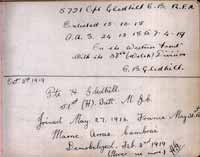 5731 Cpl Gledhill E. B. R.F.A
Enlisted 15-10-15
O.A.S. 24-12-15 to 7-4-19
On the Western Front
With the 38th (Welsh) Division
E. B. Gledhill.
Oct 5th 1919
Pte H Gledhill.
51st (H) Batt M.G.C.
Joined May 27. 1916. France May
Marne Arras Cambrai
Demobalized Feb 2nd 1919
(Since no more)